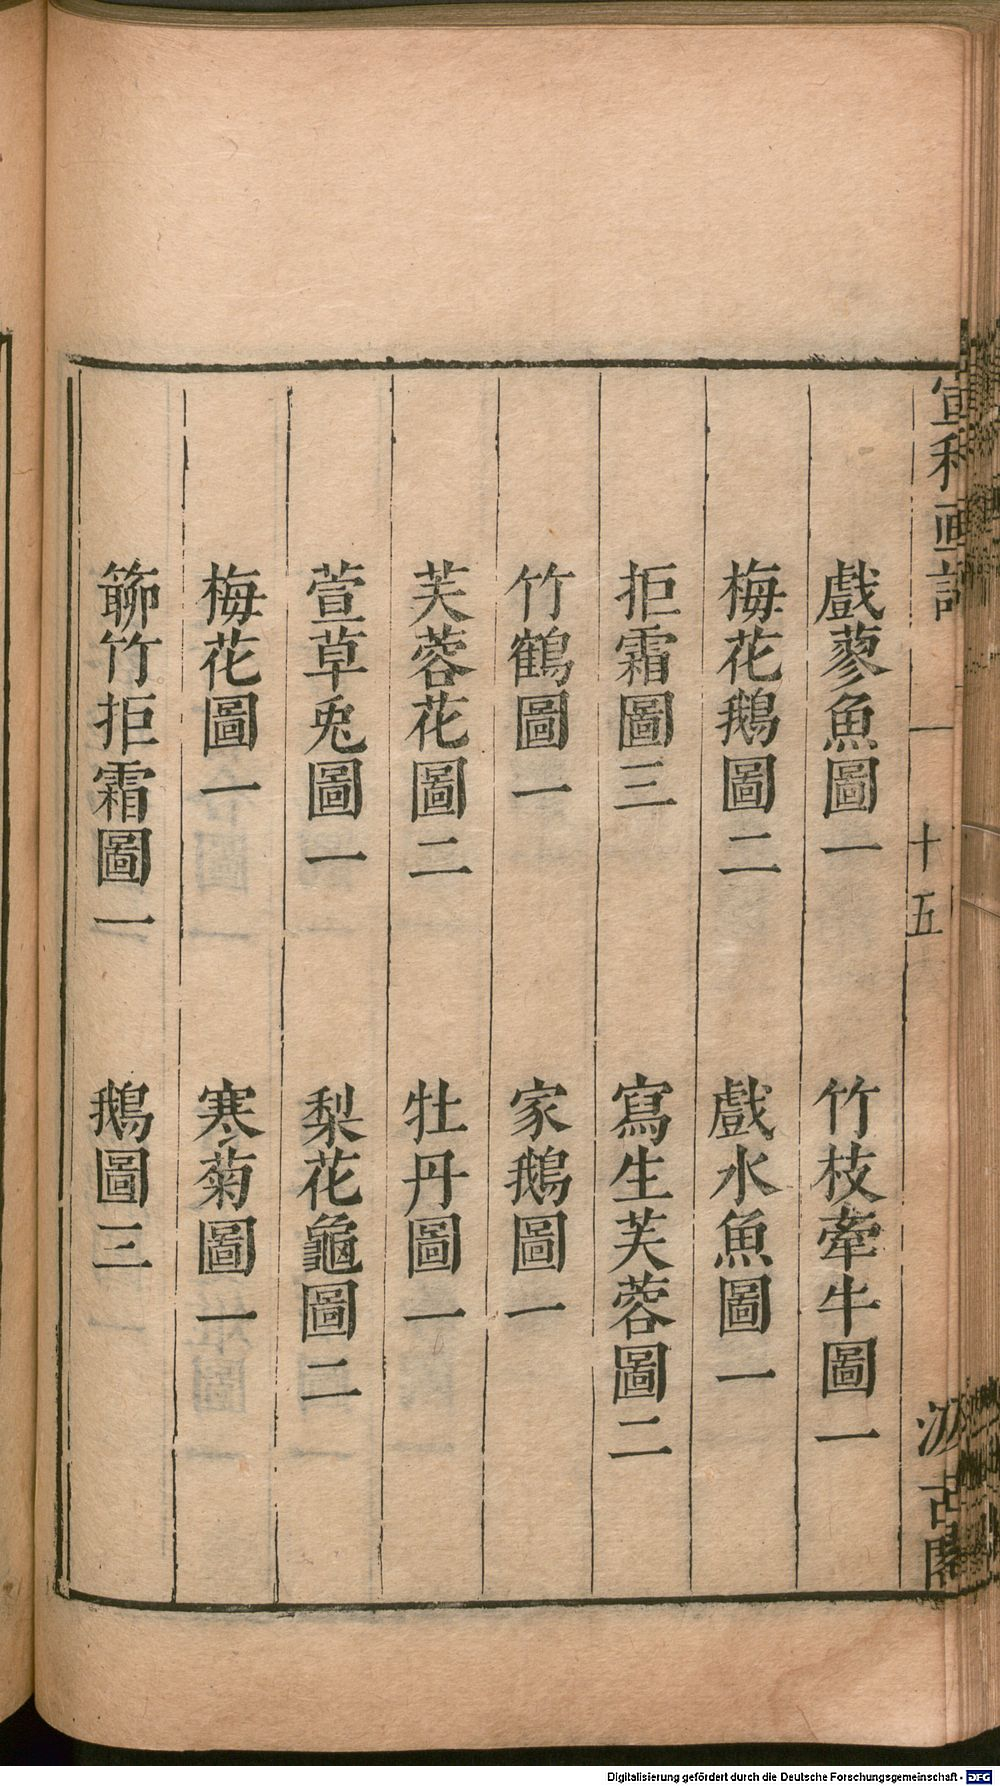 宣和画譜
十五
汲古閣
戲蓼魚圖一　竹枝牽牛圖一
梅花鵝圖二　戲水魚圖一
拒霜圖三　寫生芙蓉圖二
竹鶴圖一　家鵝圖一
芙蓉花圖二　牡丹圖一
萱草兎圖一　梨花龜圖二
梅花圖一　寒菊圖一
竹拒霜圖一　鵝圖三
Digitalisierung gefördert durch die Deutsche Forschungsgemeinschaft - DFG